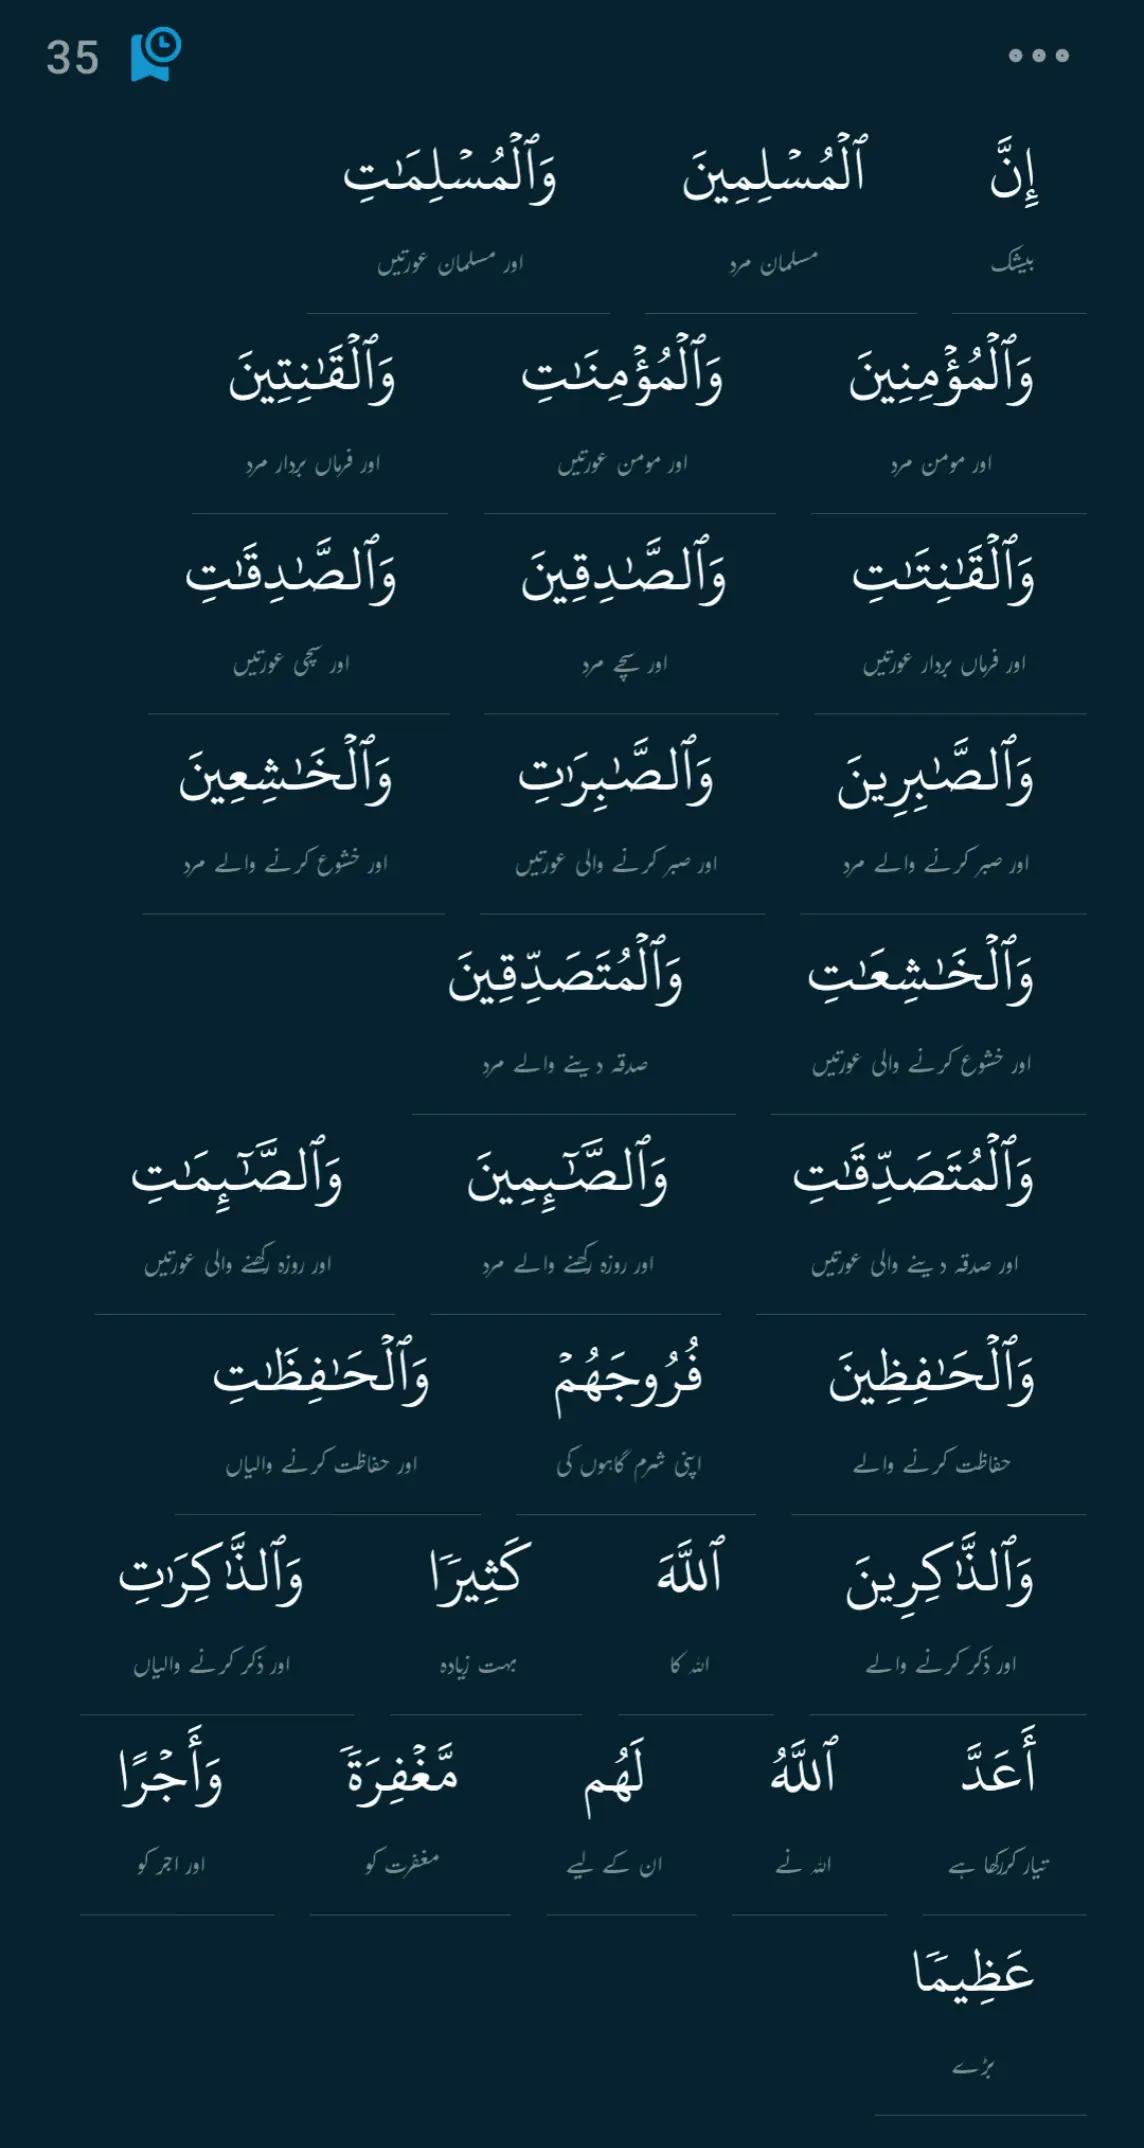 35
إِنَّ ٱلْمُسْلِمِينَ وَٱلْمُسْلِمَـٰتِ
بیشک مسلمان مرد اور مسلمان عورتیں
وَٱلْمُؤْمِنِينَ وَٱلْمُؤْمِنَـٰتِ وَٱلْقَـٰنِتِينَ
اور مومن مرد اور مومن عورتیں اور فرماں بردار مرد
وَٱلْقَـٰنِتَـٰتِ وَٱلصَّـٰدِقِينَ وَٱلصَّـٰدِقَـٰتِ
اور فرماں بردار عورتیں اور سچے مرد اور سچی عورتیں
وَٱلصَّـٰبِرِينَ وَٱلصَّـٰبِرَٰتِ وَٱلْخَـٰشِعِينَ
اور صبر کرنے والے مرد اور صبر کرنے والی عورتیں اور خشوع کرنے والے مرد
وَٱلْخَـٰشِعَـٰتِ وَٱلْمُتَصَدِّقِينَ
اور خشوع کرنے والی عورتیں صدقہ دینے والے مرد
وَٱلْمُتَصَدِّقَـٰتِ وَٱلصَّـٰٓئِمِينَ وَٱلصَّـٰٓئِمَـٰتِ
اور صدقہ دینے والی عورتیں اور روزہ رکھنے والے مرد اور روزہ رکھنے والی عورتیں
وَٱلْحَـٰفِظِينَ فُرُوجَهُمْ وَٱلْحَـٰفِظَـٰتِ
حفاظت کرنے والے اپنی شرم گاہوں کی اور حفاظت کرنے والیاں
وَٱلذَّٰكِرِينَ ٱللَّهَ كَثِيرًا وَٱلذَّٰكِرَٰتِ
اور ذکر کرنے والے اللہ کا بہت زیادہ اور ذکر کرنے والیاں
أَعَدَّ ٱللَّهُ لَهُم مَّغْفِرَةً وَأَجْرًا
تیار کررکھا ہے اللہ نے ان کے لیے مغفرت کو اور اجر کو
عَظِيمًا
بڑے